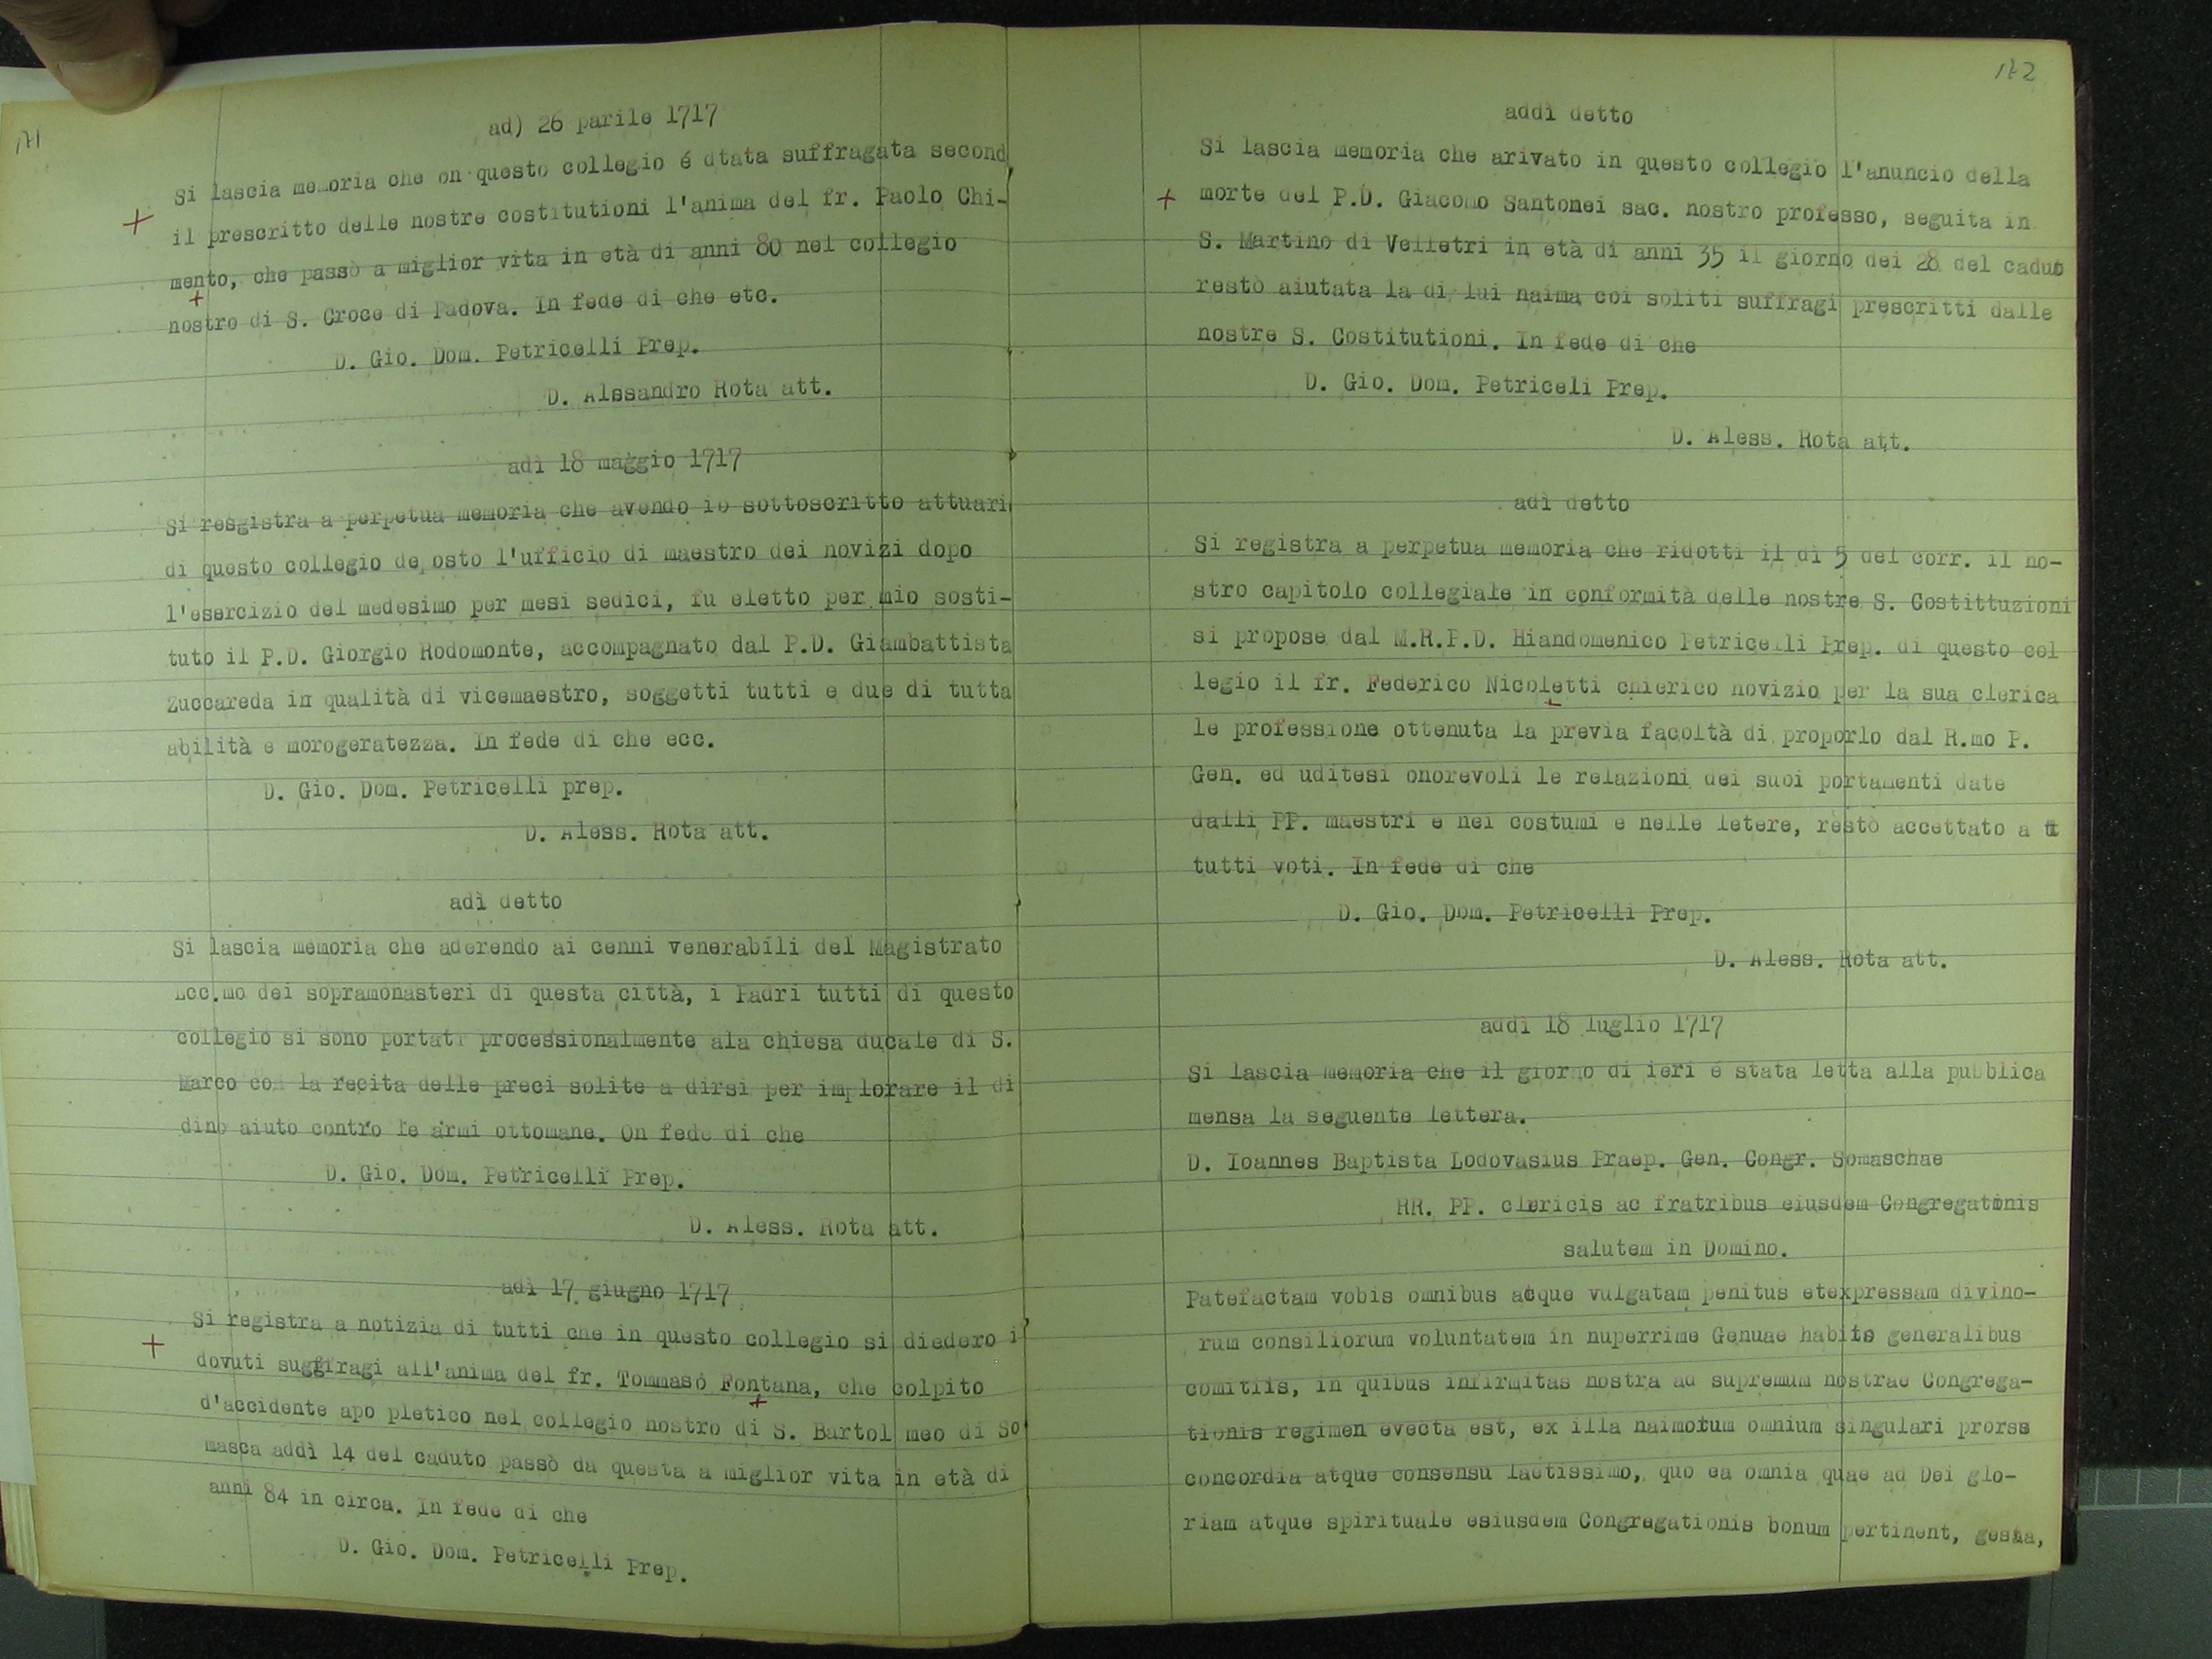 171
ad) 26 parile 1717
Si lascia memoria che on questo collegio é dtata suffragata second
il prescritto delle nostre costitutioni l'anima del fr. Paolo Chi-
mento, che passò a miglior vita in età di anni 80 nel collegio
nostro di S. Croce di Padova. In fede di che etc.
D. Gio. Dom. Petricelli Prep.
D. Alssandro Rota att.
adì 18 maggio 1717
Si resgistra a perpetua memoria che avendo io sottoscritto attuari
di questo collegio de osto l'ufficio di maestro dei novizi dopo
l'esercizio del medesimo per mesi sedici, fu eletto per mio sosti-
tuto il P.D. Giorgio Rodomonte, accompagnato dal P.D. Giambattista
Zuccareda in qualità di vicemaestro, soggetti tutti e due di tutta
abilità e morogeratezza. In fede di che ecc.
D. Gio. Dom. Petricelli prep.
D. Aless. Rota att.
adì detto
Si lascia memoria che aderendo ai cenni venerabili del Magistrato
Ecc.mo dei sopramonasteri di questa città, i Padri tutti di questo
collegio si sono portati processionalmente ala chiesa ducale di S.
Marco con la recita delle preci solite a dirsi per implorare il di
dino aiuto contro le armi ottomane. On fede di che
D. Gio. Dom. Petricelli Prep.
D. Aless. Rota att.
adì 17 giugno 1717
Si registra a notizia di tutti che in questo collegio si diedero i
dovuti suggfragi all'anima del fr. Tommaso Fontana, che colpito
d'accidente apo pletico nel collegio nostro di S. Bartol meo di So
masca addì 14 del caduto passò da questa a miglior vita in età di
anni 84 in circa. In fede di che
D. Gio. Dom. Petricelli Prep.
172
addì detto
Si lascia memoria che arivato in questo collegio l'anuncio della
morte del P.D. Giacomo Santonei sac. nostro professo, seguita in
S. Martino di Velletri in età di anni 35 il giorno dei 28 del caduto
restò aiutata la di lui naima coi soliti suffragi prescritti dalle
nostre S. Costitutioni. In fede di che
D. Gio. Dom. Petriceli Prep.
D. Aless. Rota att.
adì detto
Si registra a perpetua memoria che ridotti il dì 5 del corr. il no-
stro capitolo collegiale in conformità delle nostre S. Costittuzioni
si propose dal M.R.P.D. Hiandomenico Petricelli Prep. di questo col
legio il fr. Federico Nicoletti chierico novizio per la sua clerica
le professione ottenuta la previa facoltà di proporlo dal R.mo P.
Gen. ed uditesi onorevoli le relazioni dei suoi portamenti date
dalli PP. maestri e nei costumi e nelle letere, restò accettato a
tutti voti. In fede di che
D. Gio. Dom. Petricelli Prep.
D. Aless. Rota att.
addì 18 luglio 1717
Si lascia memoria che il giorno di ieri é stata letta alla pubblica
mensa la seguente lettera.
D. Ioannes Baptista Lodovasius Praep. Gen. Congr. Somaschae
RR. PP. clericis ac fratribus eiusdem Congregationis
salutem in Domino.
Patefactam vobis omnibus atque vulgatam penitus etexpressam divino-
rum consiliorum voluntatem in nuperrime Genuae habits generalibus
comitiis, in quibus infirmitas nostra ad supremum nostrae Congrega-
tionis regimen evecta est, ex illa naimotum omnium singulari prorss
concordia atque consensu laetissimo, quo ea omnia quae ad Dei glo-
riam atque spirituale esiusdem Congregationis bonum pertinent, gesta,